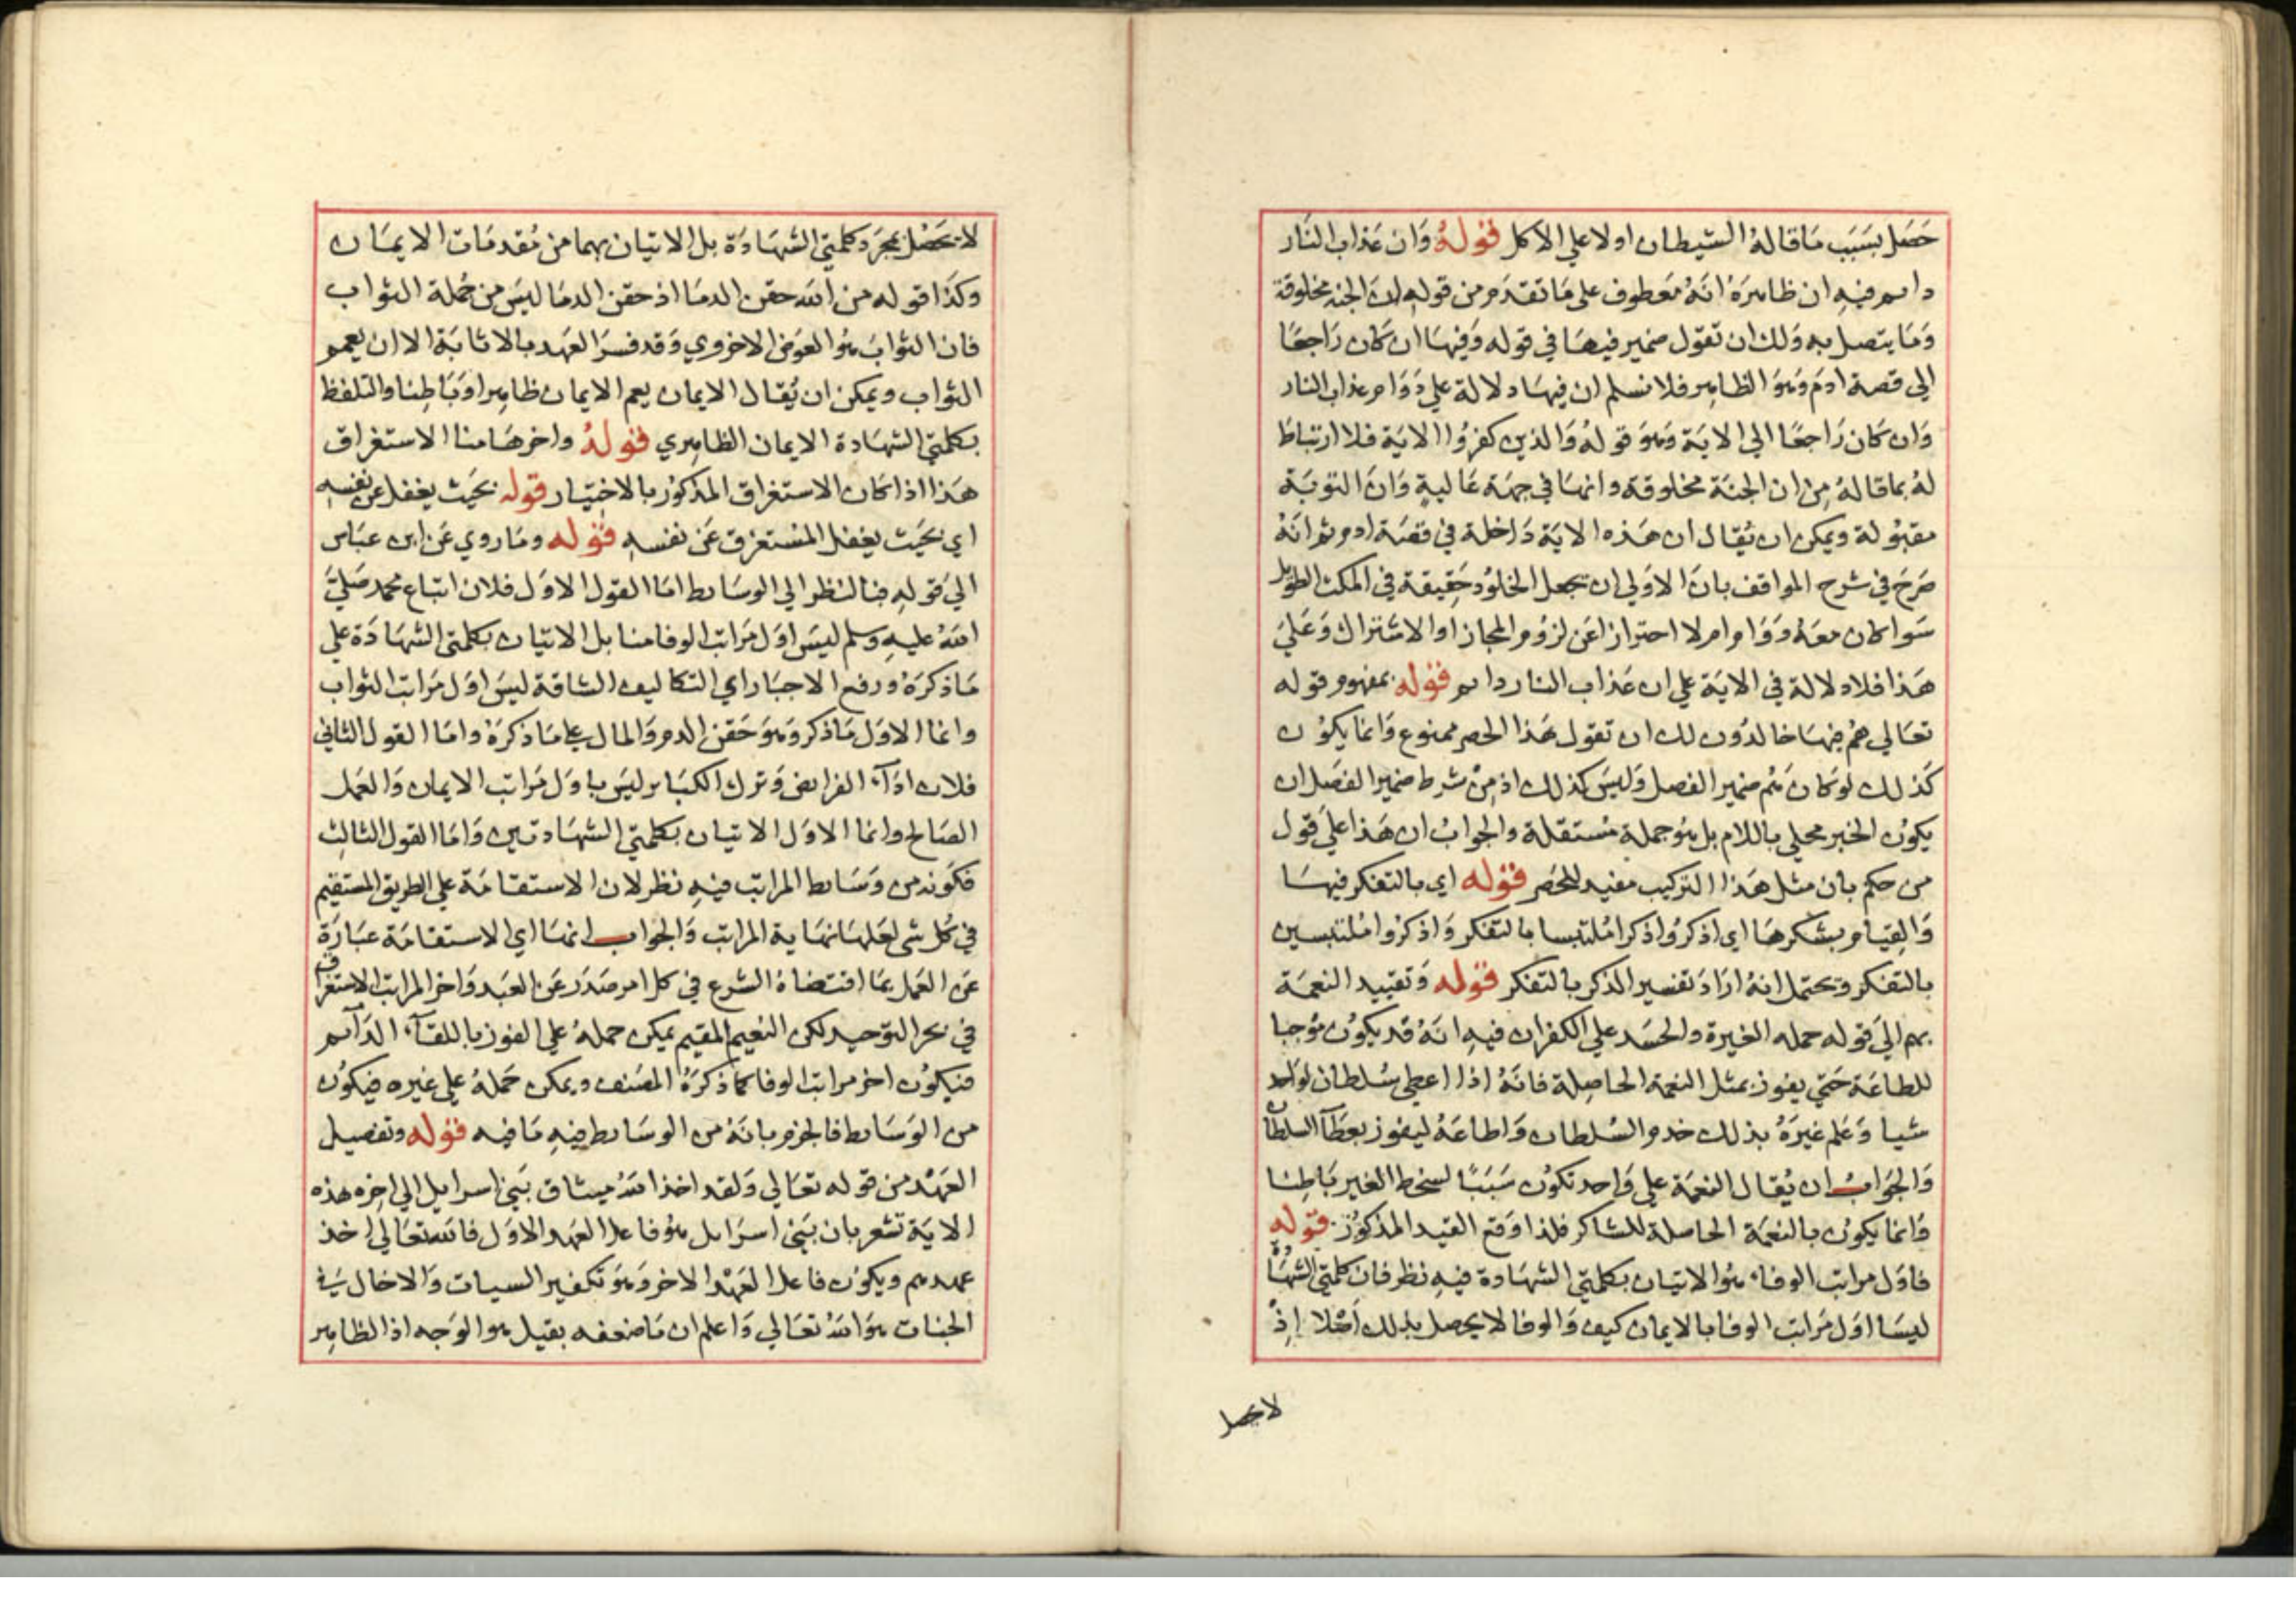 حَصَل بسَبَب مَا قالهُ الشيطان اولا علي الاكل قولهُ وَان عَذاب النَار
دايم فيهِ ان ظاهرَهُ انهُ مَعطوف علي مَا تقدَم من قولهِ ان الجنه مخلوقة
وَمَا يتصل به وَلك ان تقوَل ضمير فيهَا في قوله وَفيهَا ان كان رَاجعًا
الي قصة ادمَ وَهوَ الظاهِر فلا نسلم ان فيهَا دلالة علي دَوَام عذاب النار
وَان كَان رَاجعًا الي الاية وَهوَ قولهُ وَالذين كفرُوا الايَة فلا ارتباطَ
لهُ بما قالهُ مِن ان الجنة مخلوقة وانهَا في جهَة عَاليةٍ وَانَ التوبَة
مقبُولة ويمكن ان يُقال ان هَذه الايَة دَاخلة في قصَة ادم ثم انَهُ
صَرحَ في شرح المواقف بانَ الاولي ان يجعل الخلوُد حَقِيقة في المكث الطويل
سَوا كان معَهُ دَوَام ام لا احترازا عَن لزوُم المجاز او الاشتراك وَعَليَ
هَذا فلا دلالة في الايَة علي ان عَذاب النار دايم قوله بمفهوم قوله
تعَالي هُم فيهَا خالدُون لك ان تقول هَذا الحصر ممنوع وَانما يكوُن
كَذلك لو كان هُم ضمير الفصل وَليسَ كذلك اذ مِنْ شرط ضمير الفصَل ان
يكوُن الخبر محلي باللام بل هُو جملة مُستقلة والجوابُ ان هَذا عَليَ قول
من حكم بان مثل هَذا التركيب مفيد للحصَر قوله اي بالتفكر فيهَا
وَالِقيَام بشكرهَا اي اذكرُوا ذكرا مُلتبسا بالتفكر وَاذكرُوا مُلتبسين
بالتفكر وَيحتمل انهُ ارَادَ تفسير الذكر بالتفكر قوله وَتقييد النعمَة
بهم اليَ قوله حمله الغيرة والحسَد علي الكفران فيهِ انَهُ قد يكوُن مُوجبا
للطاعَة حَتي يفوز بمثل النعمة الحاصِلة فانَهُ اذا اعطي سُلطان لوَاحد
شيا وَعَلم غيرَهُ بذلك خدم السُلطان وَاطاعَهُ ليفوز بعطَآ السلطان
وَالجوَابُ ان يُقال النعمَة علي وَاحد تكوُن سَبَبًا لسخط الغير بَاطِنا
وَانما يكوُن بالنعمَة الحاصلة للشاكر فلذا وَقع القيد المذكوُر قوله
فاوَل مراتب الوفا، هُو الاتيان بكلمتي الشهَادة فيهِ نظر فان كلمتي الشهَادة
ليسَا اوَل مَراتب الوفا بالايمان كيف وَالوفا لا يحصل بذلك اصْلا إذْ
لا يحصل
لا يحَصل بمجرَد كلمتي الشهَادَة بل الاتيان بهما من مُقدمَات الايمَان
وكذَا قوله من اللّه حقن الدمَا اذ حقن الدمَا ليسَ من جُملة الثواب
فان الثوابَ هُو العوَض الاخروي وَقد فسرَ العَهد بالاثابَة الا ان يعمم
الثواب ويمكن ان يُقال الايمان يعم الايمان ظاهِرا وَبَاطِنا والتلفظ
بكلمتي الشهَادة الايمان الظاهِري قولهُ واخرهَا منا الاستغراق
هَذا اذا كان الاستغراق المذكوُر بالاختيَار قوله بحَيث يغفل عن نفسهِ
اي بحَيث يغفل المسْتغرق عَن نفسهِ قوله ومَا روي عَن ابن عبَاس
اليَ قولهِ فبالنظر الي الوسَايط امَا القول الاوَل فلان اتباع محمد صَليَّ
اللّهُ عليهِ وسلم ليسَ اوَل مَراتب الوفا منا بل الاتيان بكلمتي الشهَادَة علي
مَا ذكرَهُ ورفع الاجبَار اي التكاليف الشاقة ليسَ اوَل مَراتب الثواب
وانما الاوَل مَا ذكر وَهوَ حَقن الدم وَالمال علي مَا ذكرَهُ وامَا القول الثاني
فلان ادَآ، الفرايض وَترك الكبَاير ليسَ باوَل مَراتب الايمان وَالعَمل
الصَالح وانما الاوَل الاتيان بكلمتي الشهَادتين وَامَا القول الثالث
فكوَنه من وَسَايط المراتب فيهِ نظر لان الاستقامَة علي الطريق المستقيم
في كل شي لعَلهَا نهَاية المراتب وَالجواب انهَا اي الاستقامَة عبَارَة
عَن العَمل بمَا اقتضاهُ الشرع في كل امر صَدَرَ عَن العَبد وَاخر المراتب الاستغراق
في بحر التوحيد لكن النعيم المقيم يمكن حملهُ علي الفوز باللقآ، الدَآيم
فيكوُن اخر مراتب الوفا كما ذكرَهُ المصَنف ويمكن حَملهُ علي غيره فيكوُن
من الوَسَايط فالجزم بانَهُ من الوسَايط فيهِ مَا فيه قوله وتفصيل
العَهْد من قوله تعَالي وَلقد اخذ اللّهُ ميثاق بَني اسرايل الي اخِره هذه
الايَة تشعر بان بَني اسرَايل هُو فاعل العَهد الاوَل فاللّه تعَالي اخذ
عهدهم ويكوُن فاعل العَهْد الاخر وَهوَ تكفير السيات وَالادخال في
الجنات هوَ اللّهُ تعَالي وَاعلم ان مَا ضعفه بقيل هو الوَجه اذ الظاهِر